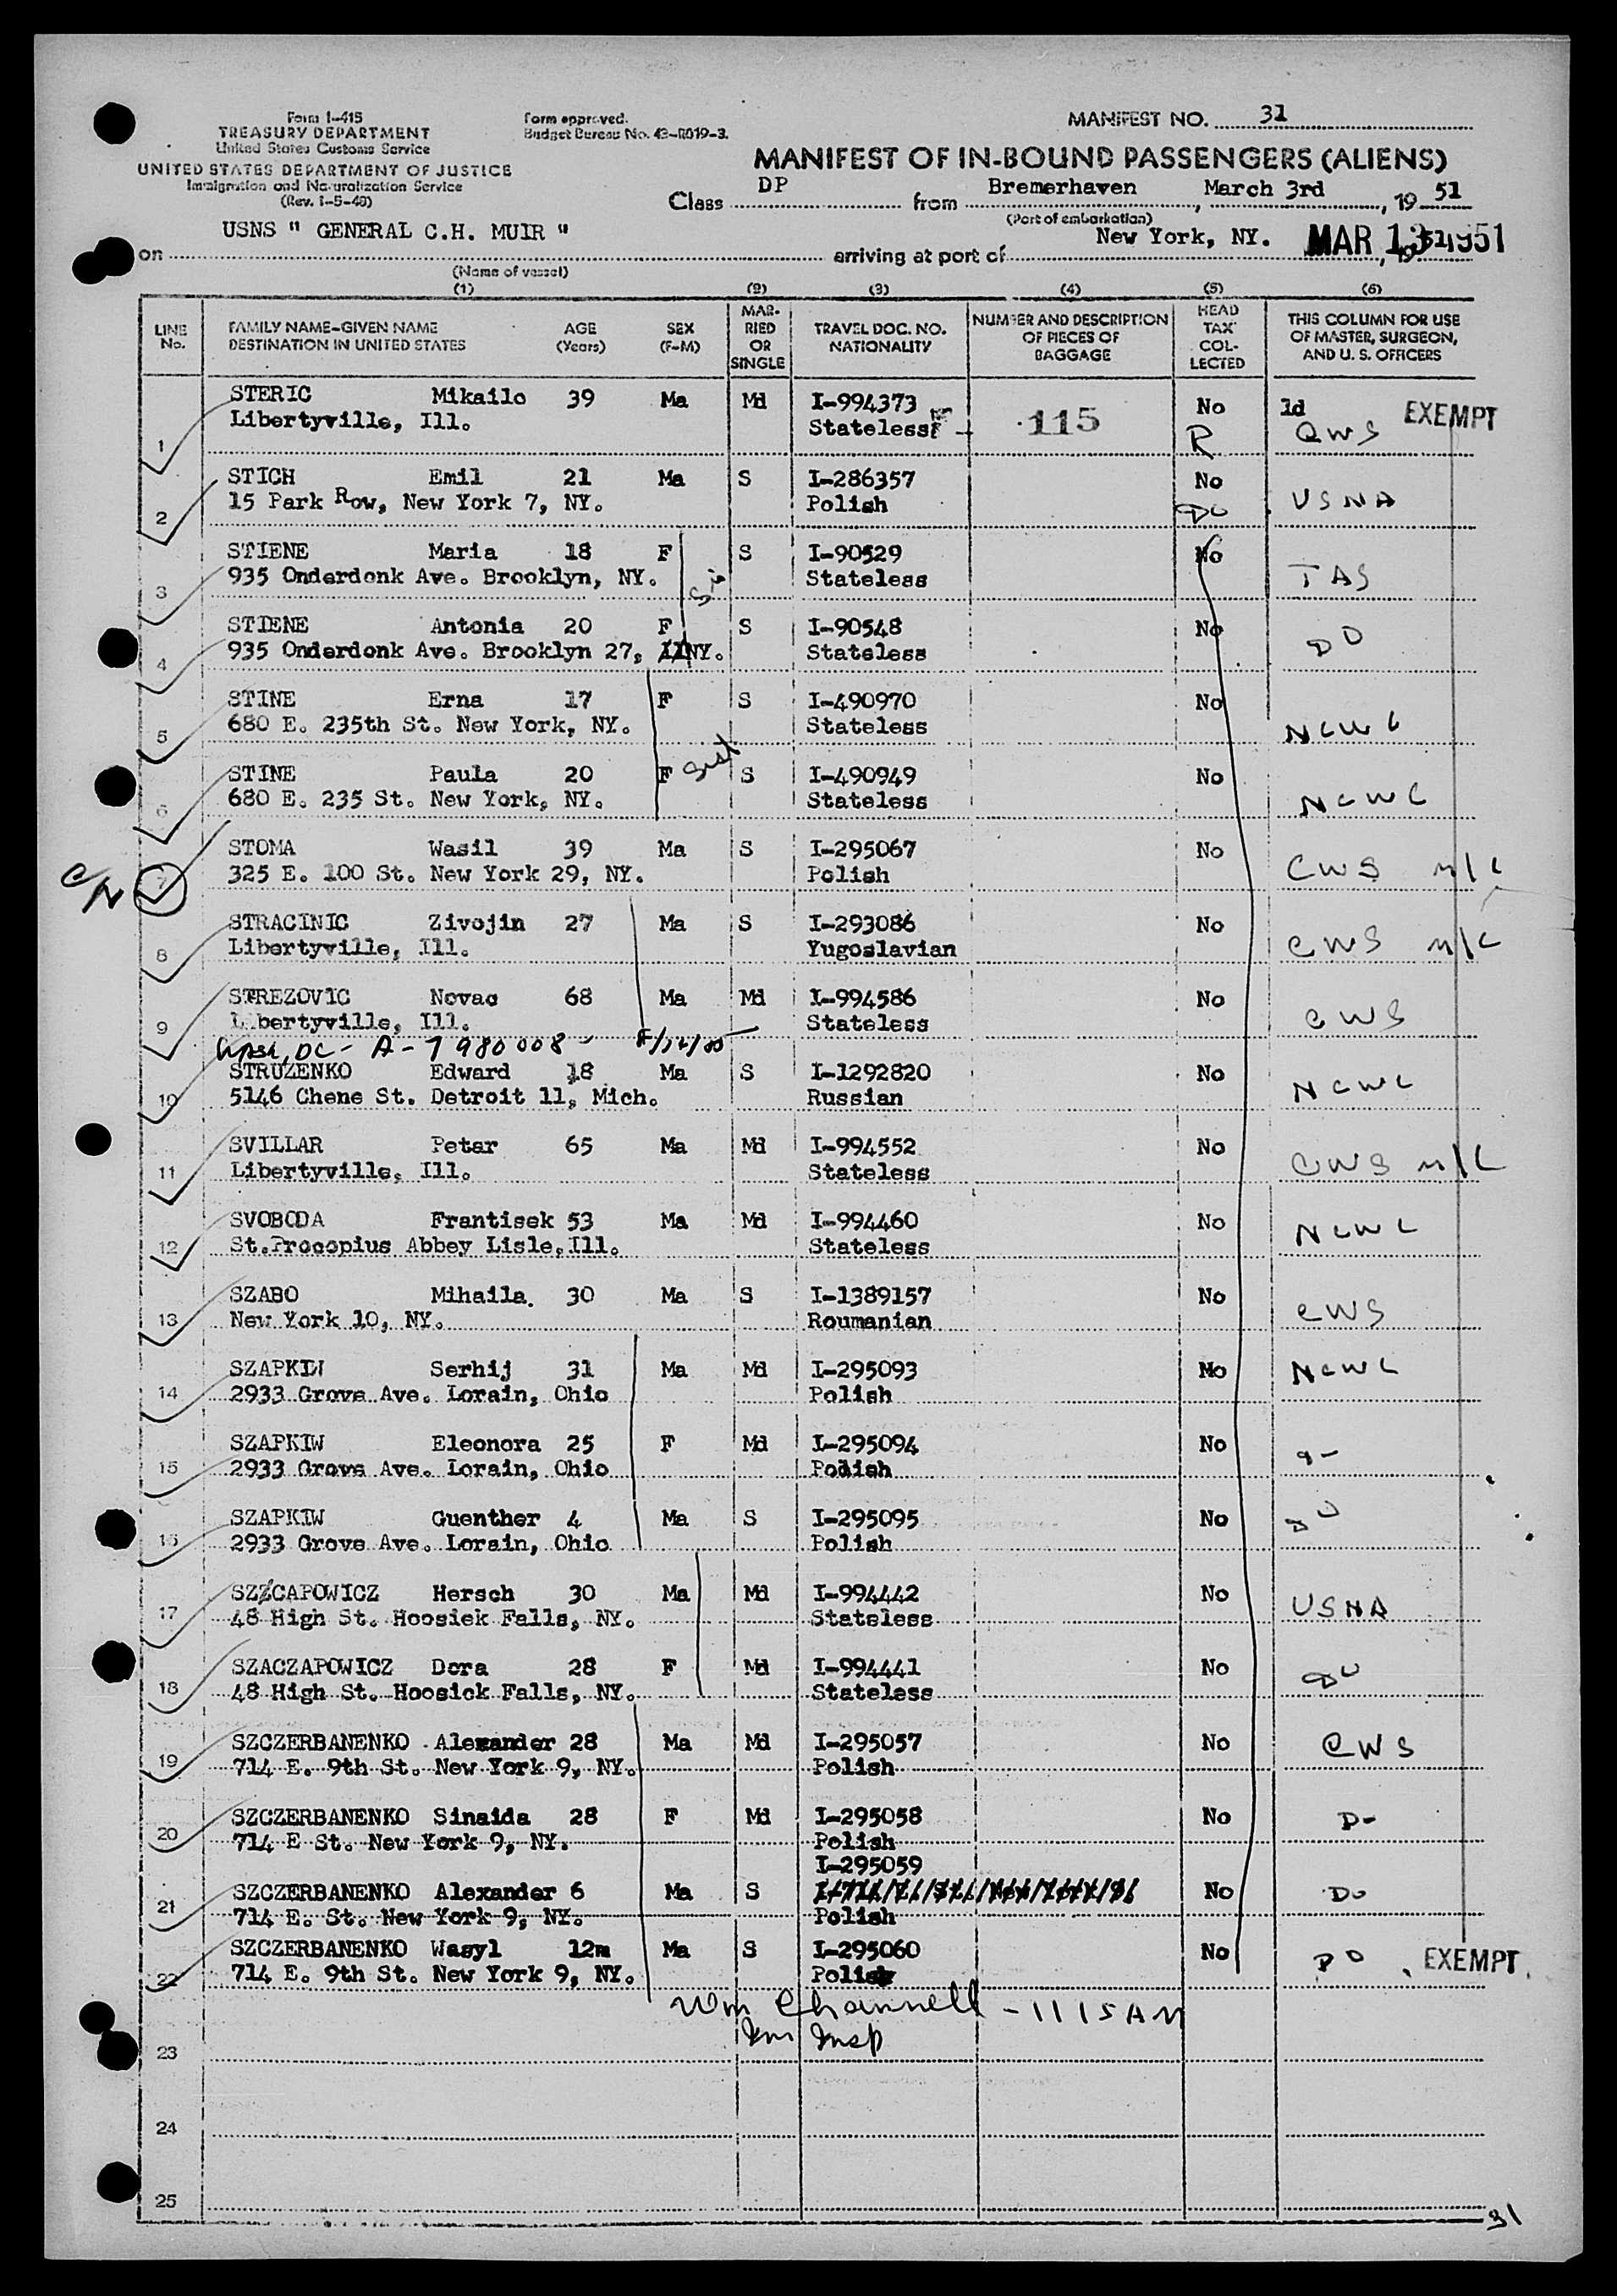 Form I-415
TREASURY DEPARTMENT
United States Customs Service
UNITED STATES DEPARTMENT OF JUSTICE
Immigration and Naturalization Service
(Rev. 1-5-49)
Form approved.
Budget Bureau No. 43-R019-3.
MANIFEST NO. 31
MANIFEST OF IN-BOUND PASSENGERS (ALIENS)
Class DP from Bremerhaven, March 3rd, 19 51
(Port of embarkation)
on USNS " GENERAL C.H. MUIR " arriving at port of New York, NY. MAR 13 1951, 19 51
(Name of vessel)
(1) (2) (3) (4) (5) (6)
LINE No. FAMILY NAME—GIVEN NAME DESTINATION IN UNITED STATES AGE (Years) SEX (F-M) MARRIED OR SINGLE TRAVEL DOC. NO. NATIONALITY NUMBER AND DESCRIPTION OF PIECES OF BAGGAGE HEAD TAX COLLECTED THIS COLUMN FOR USE OF MASTER, SURGEON, AND U. S. OFFICERS
1 STERIC Mikailo 39 Ma Md I-994373 115 No 1d EXEMPT
Libertyville, Ill. Stateless R CWS
2 STICH Emil 21 Ma S I-286357 No
15 Park Row, New York 7, NY. Polish Do USNA
3 STIENE Maria 18 F S I-90529 No
935 Onderdonk Ave. Brooklyn, NY. Sis Stateless TAS
4 STIENE Antonia 20 F S I-90548 No DO
935 Onderdonk Ave. Brooklyn 27, NY. Stateless
5 STINE Erna 17 F S I-490970 No
680 E. 235th St. New York, NY. Stateless NCWC
6 STINE Paula 20 F Sist S I-490949 No
680 E. 235 St. New York, NY. Stateless NCWC
C/N 7 STOMA Wasil 39 Ma S I-295067 No
325 E. 100 St. New York 29, NY. Polish CWS n/c
8 STRACINIC Zivojin 27 Ma S I-293086 No
Libertyville, Ill. Yugoslavian CWS n/c
9 STREZOVIC Novac 68 Ma Md I-994586 No
Libertyville, Ill. Stateless CWS
Wash, DC - A-7980008 -
10 STRUZENKO Edward 18 Ma S I-1292820 No
5146 Chene St. Detroit 11, Mich. Russian NCWC
11 SVILLAR Petar 65 Ma Md I-994552 No
Libertyville, Ill. Stateless CWS n/c
12 SVOBODA Frantisek 53 Ma Md I-994460 No
St.Procopius Abbey Lisle,Ill. Stateless NCWC
13 SZABO Mihaila. 30 Ma S I-1389157 No
New York 10, NY. Roumanian CWS
14 SZAPKIW Serhij 31 Ma Md I-295093 No NCWC
2933 Grove Ave. Lorain, Ohio Polish
15 SZAPKIW Eleonora 25 F Md I-295094 No
2933 Grove Ave. Lorain, Ohio Polish
16 SZAPKIW Guenther 4 Ma S I-295095 No DO
2933 Grove Ave. Lorain, Ohio Polish
17 SZZCAPOWICZ Hersch 30 Ma Md I-994442 No
48 High St. Hoosiek Falls, NY. Stateless USNA
18 SZACZAPOWICZ Dora 28 F Md I-994441 No DO
48 High St. Hoosick Falls, NY. Stateless
19 SZCZERBANENKO Alexander 28 Ma Md I-295057 No CWS
714 E. 9th St. New York 9, NY. Polish
20 SZCZERBANENKO Sinaida 28 F Md I-295058 No D-
714 E St. New York 9, NY. Polish
I-295059
21 SZCZERBANENKO Alexander 6 Ma S No Do
714 E. St. New York 9, NY. Polish
22 SZCZERBANENKO Wasyl 12m Ma S I-295060 No DO EXEMPT
714 E. 9th St. New York 9, NY. Polish
Wm Channell - 1115AM
Im Insp
23
24
25
31